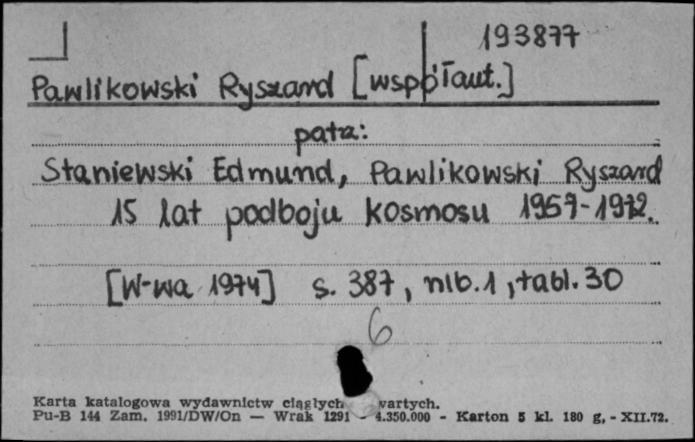 193877
Pawlikowski Ryszard [współaut.]
patrz:
Staniewski Edmund, Pawlikowski Ryszard
15 lat podboju kosmosu 1957-1972.
[W-wa 1974] s. 387, nlb. 1, tabl. 30
6
Karta katalogowa wydawnictw ciągłych wartych.
Pu-B 144 Zam. 1991/DW/On — Wrak 1291 - 4.350.000 - Karton 5 kl. 180 g, - XII.72.